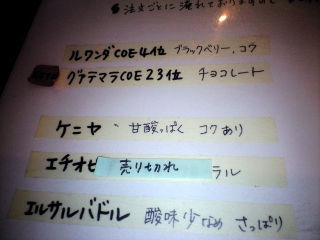 注文ごとに淹れておりますので
ルワンダCOE4位 ブラックベリー、コウ
グァテマラCOE23位 チョコレート
ケニヤ 甘酸っぱく コクあり
エチオピ 売り切れ ラル
エルサルバドル 酸味少なめ さっぱり